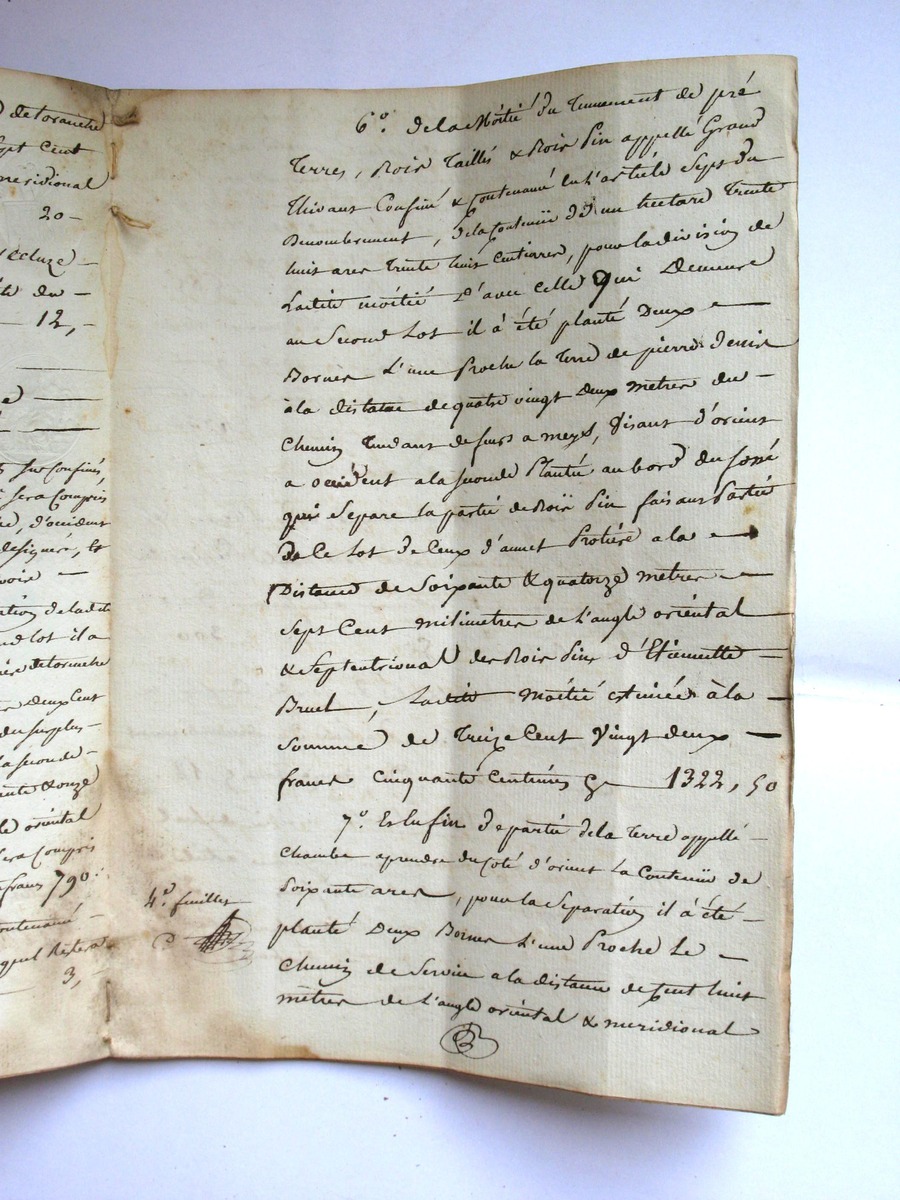 de toranche
Sept Cent
meridional
20 -
L'ecluze -
du -
12, -
Sur Confinés,
Sera Compris
d'occident
designéé, Et
de ladite
lot il a
de toranche
Deux Cent
du surplus -
la seconde -
onze
oriéntal
Sera Compris
francs 790.
Contenanné -
3, -
6º. de la Moitié du Tennement de pré
Terres, Bois Taillis & Bois Pin appellé Grand
Thivant Confiné & Contenanné En l'article Sept du
Denombrement, de la Contenüe d'un hectare Trente
huit ares Trente huit Centiares, pour la division de
Laditte moitié D'avec celle Qui Demeure
au Second Lot il à été planté Deux -
Bornes L'une Proche la Terre de pierre Denis
à la distance de quatre vingt Deux mètres du -
Chemin Tendant de a meys, Visant d'orient
a occident a la seconde Plantéé au bord du fossé
qui Separe la partié de Bois Pin faisant Partié
de Ce Lot de Ceux d'annet Protiére a la -
Distance de Soixante & quatorze mètres -
Sept Cent milimetres de L'angle oriéntal
& Septentrional des Bois Pins d'Etiennette -
Bruel, Laditte Moitié estiméé à la -
Somme de Treize Cent Vingt deux -
francs Cinquante Centimes Cy 1322, 50
7º. Et Enfin De partié de la Terre appelléé -
Chambe aprendre du Coté d'orient La Contenüe de
Soixante ares, pour la Séparation il à été -
planté Deux Bornes L'une Proche Le -
Chemin de Servive a la distance de Cent huit
mètres de L'angle oriéntal & meridional
4.e feuillet